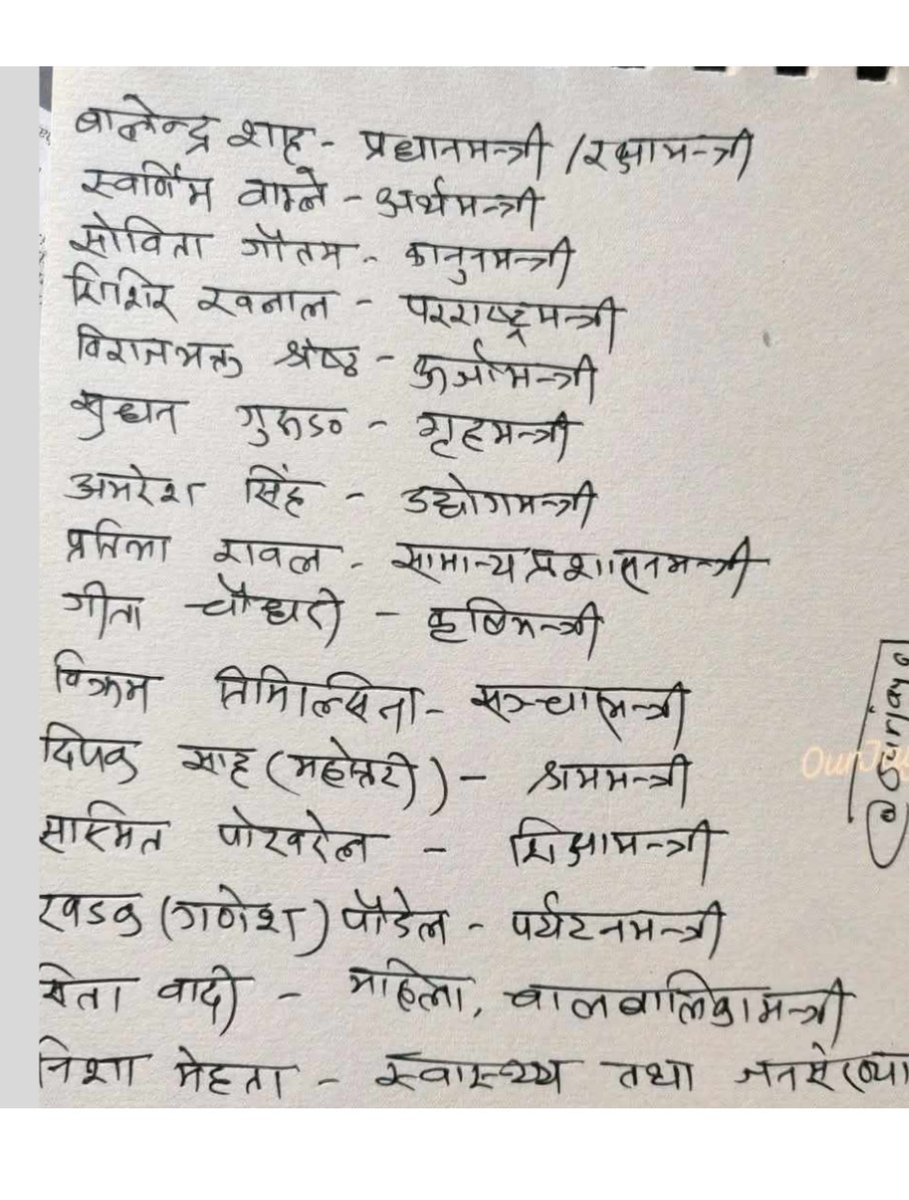 बालेन्द्र शाह - प्रधानमन्त्री / रक्षामन्त्री
स्वर्णिम वाग्ले - अर्थमन्त्री
सोविता गौतम - कानुनमन्त्री
शिशिर खनाल - परराष्ट्रमन्त्री
विराजभक्त श्रेष्ठ - ऊर्जामन्त्री
सुधन गुरुङ - गृहमन्त्री
अमरेश सिंह - उद्योगमन्त्री
प्रतिभा रावल - सामान्य प्रशासनमन्त्री
गीता चौधरी - कृषिमन्त्री
विक्रम तिमिल्सिना - सञ्चारमन्त्री
दिपक साह (महोत्तरी) - श्रममन्त्री
सास्मित पोखरेल - शिक्षामन्त्री
खडक (गणेश) पौडेल - पर्यटनमन्त्री
सीता वादी - महिला, बालबालिकामन्त्री
निशा मेहता - स्वास्थ्य तथा जनसंख्या